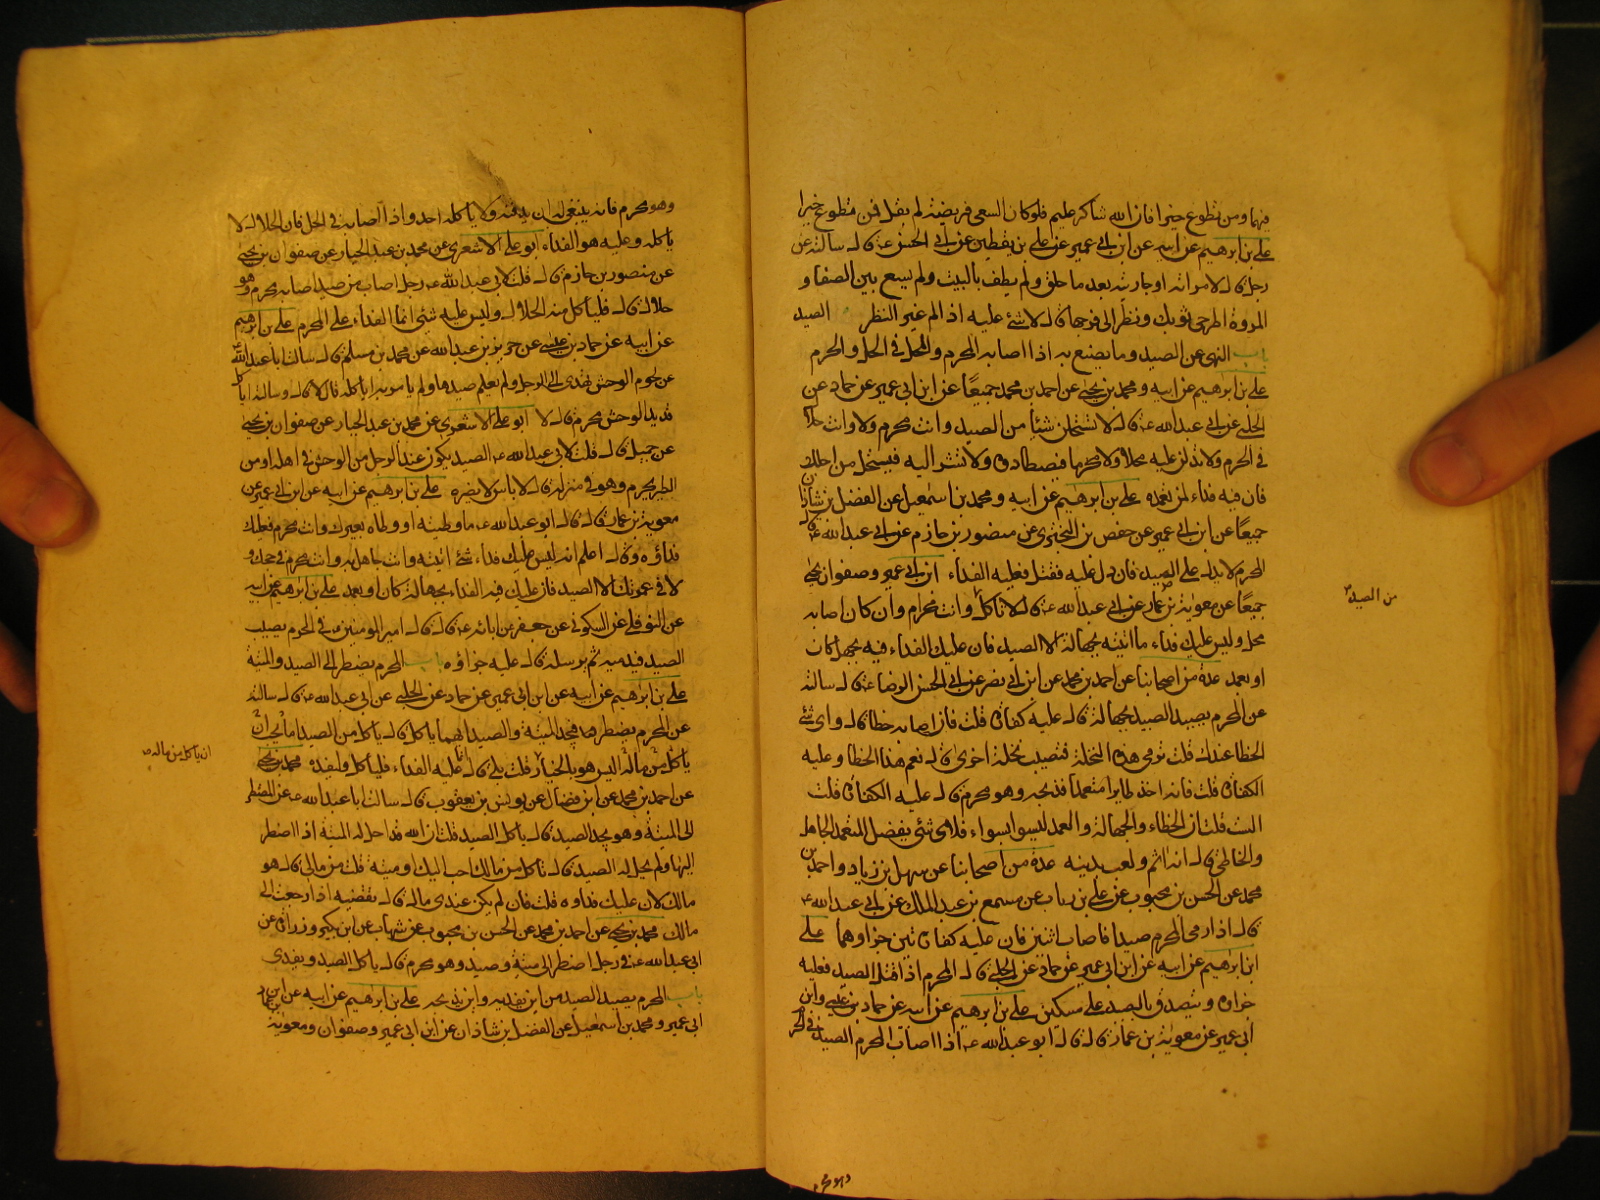 فيها ومن تطوع خيرا فان الله شاكر عليم فلو كان السعى فريضة لم يقل فمن تطوع خيرا
على بن ابرهيم عن ابيه عن ابن ابى عمير عن على بن يقطين عن ابى الحسن عه قال سالته عن
رجل قال لامراته او جاريته بعد ما حلق ولم يطف بالبيت ولم يسع بين الصفا و
المروة اطرحى ثوبك ونظر الى فرجها قال لا شئ عليه اذا لم غير النظر الصيد
باب النهى عن الصيد وما يصنع به اذا اصابه المحرم والمحل فى الحل والحرم
على بن ابرهيم عن ابيه ومحمد بن يحيى عن احمد بن محمد جميعا عن ابن ابى عمير عن حماد عن
الحلبى عن ابى عبدالله عه قال لا تستحلن شيئا من الصيد وانت محرم ولا وانت حلال
فى الحرم ولا تدلن عليه محلا ولا محرما فيصطادوه ولا تشر اليه فيستحل من اجلك
فان فيه فداء لمن تعمده على بن ابرهيم عن ابيه ومحمد بن اسمعيل عن الفضل بن شاذان
جميعا عن ابن ابى عمير عن حفص بن البخترى عن منصور بن حازم عن ابى عبدالله عه قال
المحرم لا يدل على الصيد فان دل عليه فقتل فعليه الفداء ابن ابى عمير وصفوان بن يحيى
جميعا عن معوية بن عمار عن ابى عبدالله عه قال لا تاكل وانت محرام وان كان اصابه
من الصيد
محل وليس عليك فداء ما اتيته بجهالة الا الصيد فان عليك الفداء فيه بجهل كان
او بعمد عدة من اصحابنا عن احمد بن محمد عن ابن ابى نصر عن ابى الحسن الرضا عه قال سالته
عن المحرم يصيد الصيد بجهالة قال عليه كفارة قلت فان اصابه خطا قال واى شئ
الخطا عندك قلت نرمى هذه النخلة فتصيب نخلة اخرى قال نعم هذا الخطا وعليه
الكفارة قلت فانه اخذ طايرا متعمدا فذبحه وهو محرم قال عليه الكفارة قلت
الست قلت ان الخطاء والجهالة والعمد ليسوا بسواء فلاى شئ يفضل المتعمد الجاهل
والخاطى قال انه اثم ولعب بدينه عدة من اصحابنا عن سهل بن زياد واحمد بن
محمد عن الحسن بن محبوب عن على بن رياب عن مسمع بن عبد الملك عن ابى عبدالله عه
قال اذا رمى المحرم صيدا فاصاب اثنين فان عليه كفارتين جزاوهما على
ابن ابرهيم عن ابيه عن ابن ابى عمير عن حماد عن الحلبى قال المحرم اذا قتل الصيد فعليه
جزاوه ويتصدق بالصيد على مسكين على بن ابرهيم عن ابيه عن حماد بن عيسى وابن
ابى عمير عن معوية بن عمار قال قال ابو عبدالله عه اذا اصاب المحرم الصيد فى الحرم
وهو محرم
وهو محرم فانه ينبغى له ان يدفنه ولا ياكله احد واذا اصابه فى الحل فان الحلال لا
ياكله وعليه هو الفداء ابو على الاشعرى عن محمد بن عبد الجبار عن صفوان بن يحيى
عن منصور بن حازم قال قلت لابى عبدالله عه رجل اصاب من صيد اصابه محرم وهو
حلال قال فلياكل منه الحلال وليس عليه شئ انما الفداء على المحرم على بن ابرهيم
عن ابيه عن حماد بن عيسى عن حريز بن عبدالله عن محمد بن مسلم قال سالت ابا عبدالله
عن لحوم الوحش تهدى الى الرجل ولم يعلم صيدها ولم يامر به اياكله قال لا قال وسالته اياكل
قديد الوحش محرم قال لا ابو على الاشعرى عن محمد بن عبد الجبار عن صفوان بن يحيى
عن جميل قال قلت لابى عبدالله عه الصيد يكون عند الرجل من الوحش فى اهله او من
الطير يحرم وهو فى منزله قال لا باس لا يضره على بن ابرهيم عن ابيه عن ابن ابى عمير عن
معوية بن عمار قال قال ابو عبدالله عه ما وطيته او وطاه بعيرك وانت محرم فعليك
فداؤه وقال اعلم انه ليس عليك فداء شئ اتيته وانت جاهل به وانت محرم فى حجك و
لا فى عمرتك الا الصيد فان عليك فيه الفداء بجهالة كان او بعمد على بن ابرهيم عن ابيه
عن النوفلى عن السكونى عن جعفر عن ابائه عه قال قال امير المومنين عه فى المحرم يصيب
الصيد فيدميه ثم يرسله قال عليه جزاؤه باب المحرم يضطر الى الصيد والميتة
على بن ابرهيم عن ابيه عن ابن ابى عمير عن حماد عن الحلبى عن ابى عبدالله عه قال سالته
عن المحرم يضطر فيجد الميتة والصيد ايهما ياكل قال ياكل من الصيد اما يحب ان
ان ياكل من ماله
ياكل من ماله اليس هو بالخيار قلت بلى قال انما عليه الفداء فلياكل وليفده محمد بن يحيى
عن احمد بن محمد عن ابن فضال عن يونس بن يعقوب قال سالت ابا عبدالله عه عن المضطر
الى الميتة وهو يجد الصيد قال ياكل الصيد قلت ان الله قد احل له الميتة اذا اضطر
اليها ولم يحل له الصيد قال تاكل من مالك احب اليك او ميتة قلت من مالى قال هو
مالك لان عليك فداوه قلت فان لم يكن عندى مال قال تقضيه اذا رجعت الى
مالك محمد بن يحيى عن احمد بن محمد عن الحسن بن محبوب عن شهاب عن ابن بكير وزرارة عن
ابى عبدالله عه فى رجل اضطر الى ميتة وصيد وهو محرم قال ياكل الصيد ويفدى
باب المحرم يصيد الصيد من اين يفديه واين يذبحه على بن ابرهيم عن ابيه عن ابن
ابى عمير ومحمد بن اسمعيل عن الفضل بن شاذان عن ابن ابى عمير وصفوان ومعوية